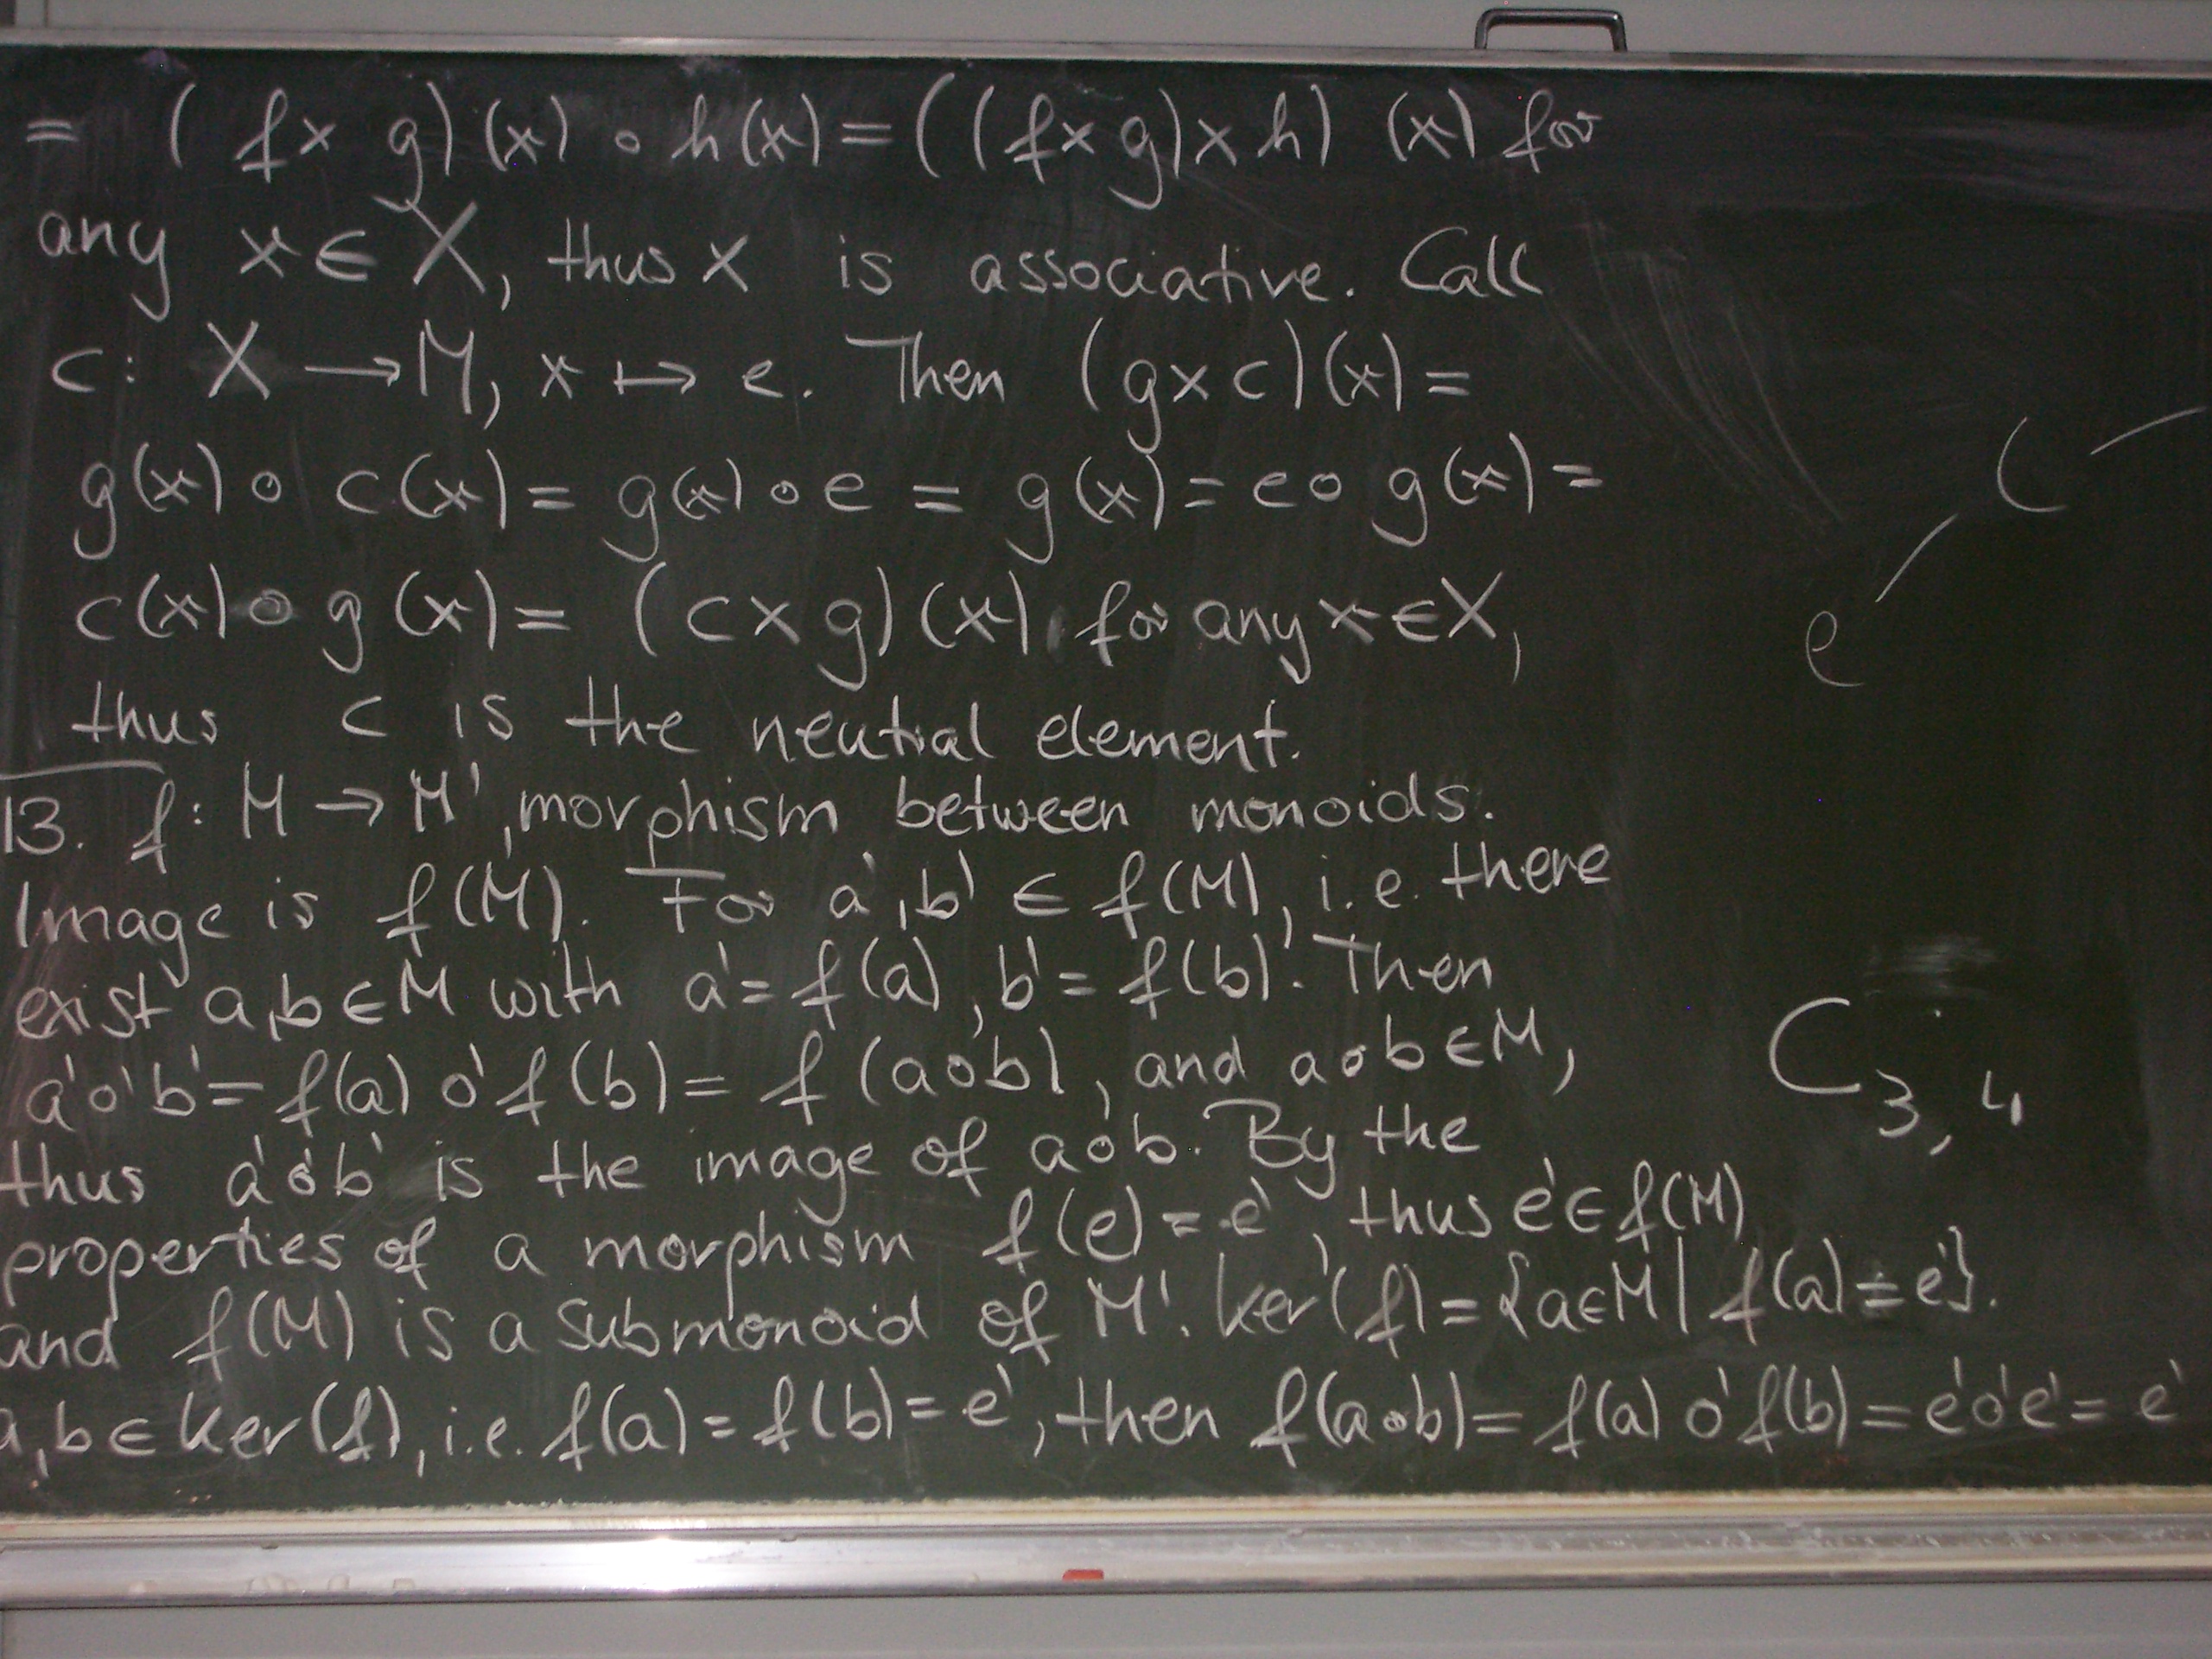 = (f × g)(x) ∘ h(x) = ((f × g) × h) (x) for
any x ∈ X, thus × is associative. Call
c: X → M, x ↦ e. Then (g × c)(x) =
g(x) ∘ c(x) = g(x) ∘ e = g(x) = e ∘ g(x) =
c(x) ∘ g(x) = (c × g)(x) for any x ∈ X,
thus c is the neutral element.
13. f: M → M', morphism between monoids.
Image is f(M). For a', b' ∈ f(M), i.e. there
exist a, b ∈ M with a' = f(a), b' = f(b). Then
a' ∘' b' = f(a) ∘' f(b) = f(a ∘ b), and a ∘ b ∈ M,
thus a' ∘' b' is the image of a ∘ b. By the
properties of a morphism f(e) = e', thus e' ∈ f(M)
and f(M) is a submonoid of M'. ker(f) = {a ∈ M | f(a) = e'}.
a, b ∈ ker(f), i.e. f(a) = f(b) = e', then f(a ∘ b) = f(a) ∘' f(b) = e' ∘' e' = e'
C
e
C₃,₄